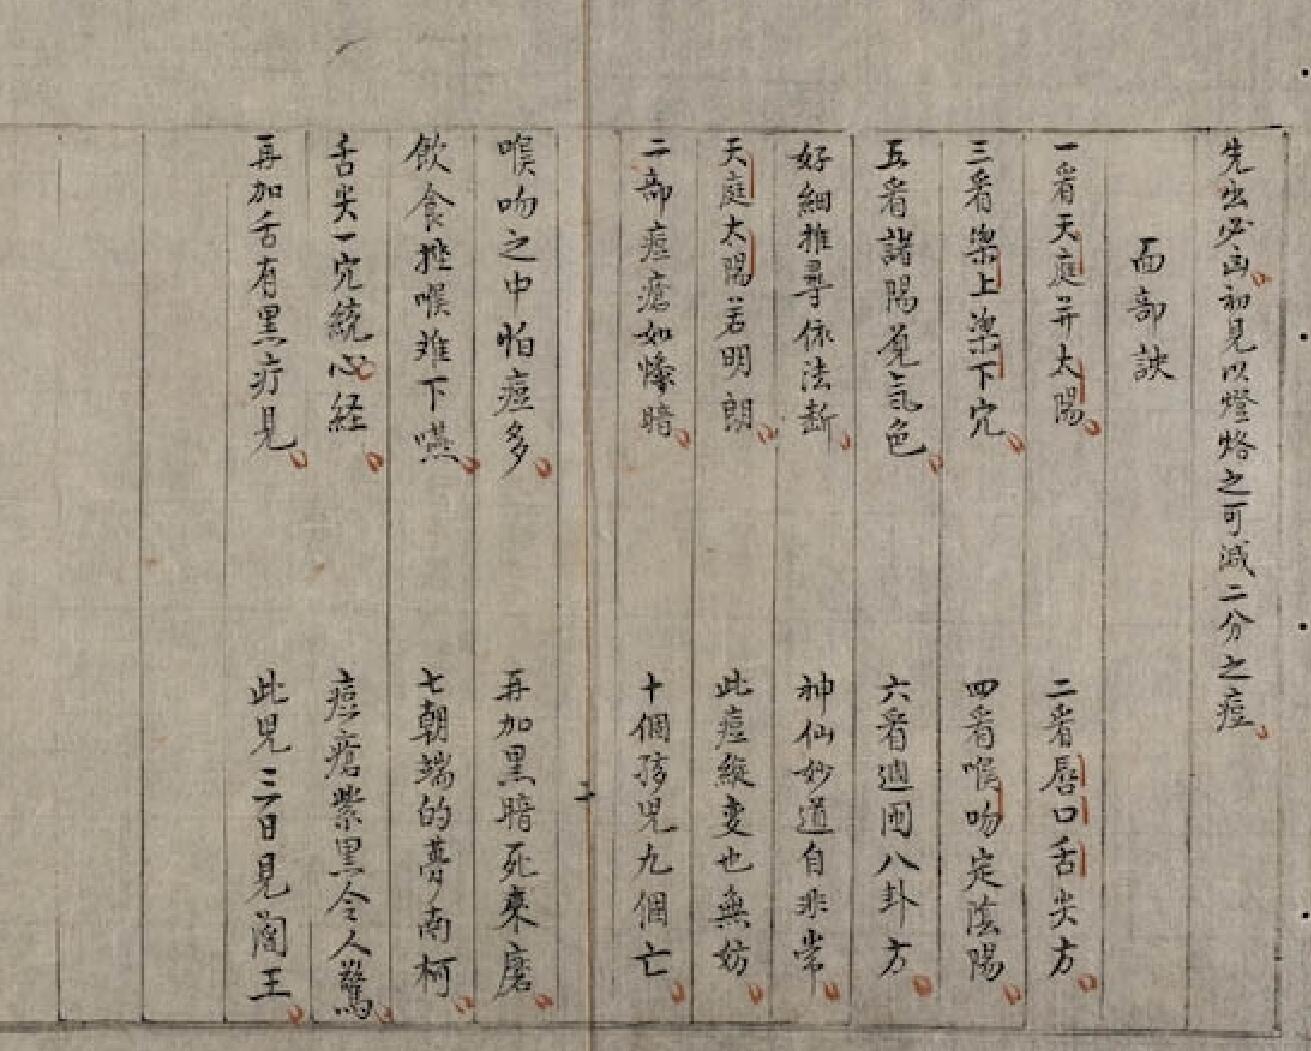 先出必凶初見以燈烙之可減二分之痘
面部訣
一看天庭並太陽 二看唇口舌尖方
三看梁上梁下穴 四看喉吻定陰陽
五看諸陽覓氣色 六看週囤八卦方
好細推尋依法斷 神仙妙道自非常
天庭太陽若明朗 此痘縱变也無妨
二部痘瘡如慘暗 十個孩児九個亡
二
喉吻之中怕痘多 再加黒暗死來磨
飲食挫喉难下嚥 七朝端的夢南柯
舌尖一穴統心経 痘瘡紫黒令人驚
再加舌有黒疔見 此児三日見閻王